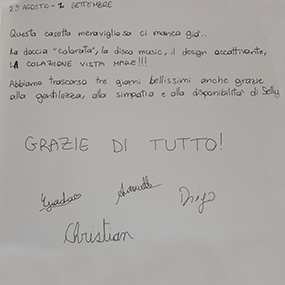 29 AGOSTO - 2 SETTEMBRE
Questa casetta meravigliosa ci manca già...
La doccia "colorata", la disco music, il design accattivante,
LA COLAZIONE VISTA MARE!!!
Abbiamo trascorso tre giorni bellissimi anche grazie
alla gentilezza, alla simpatia e alla disponibilità di Selly
GRAZIE DI TUTTO!
Giada
Christian